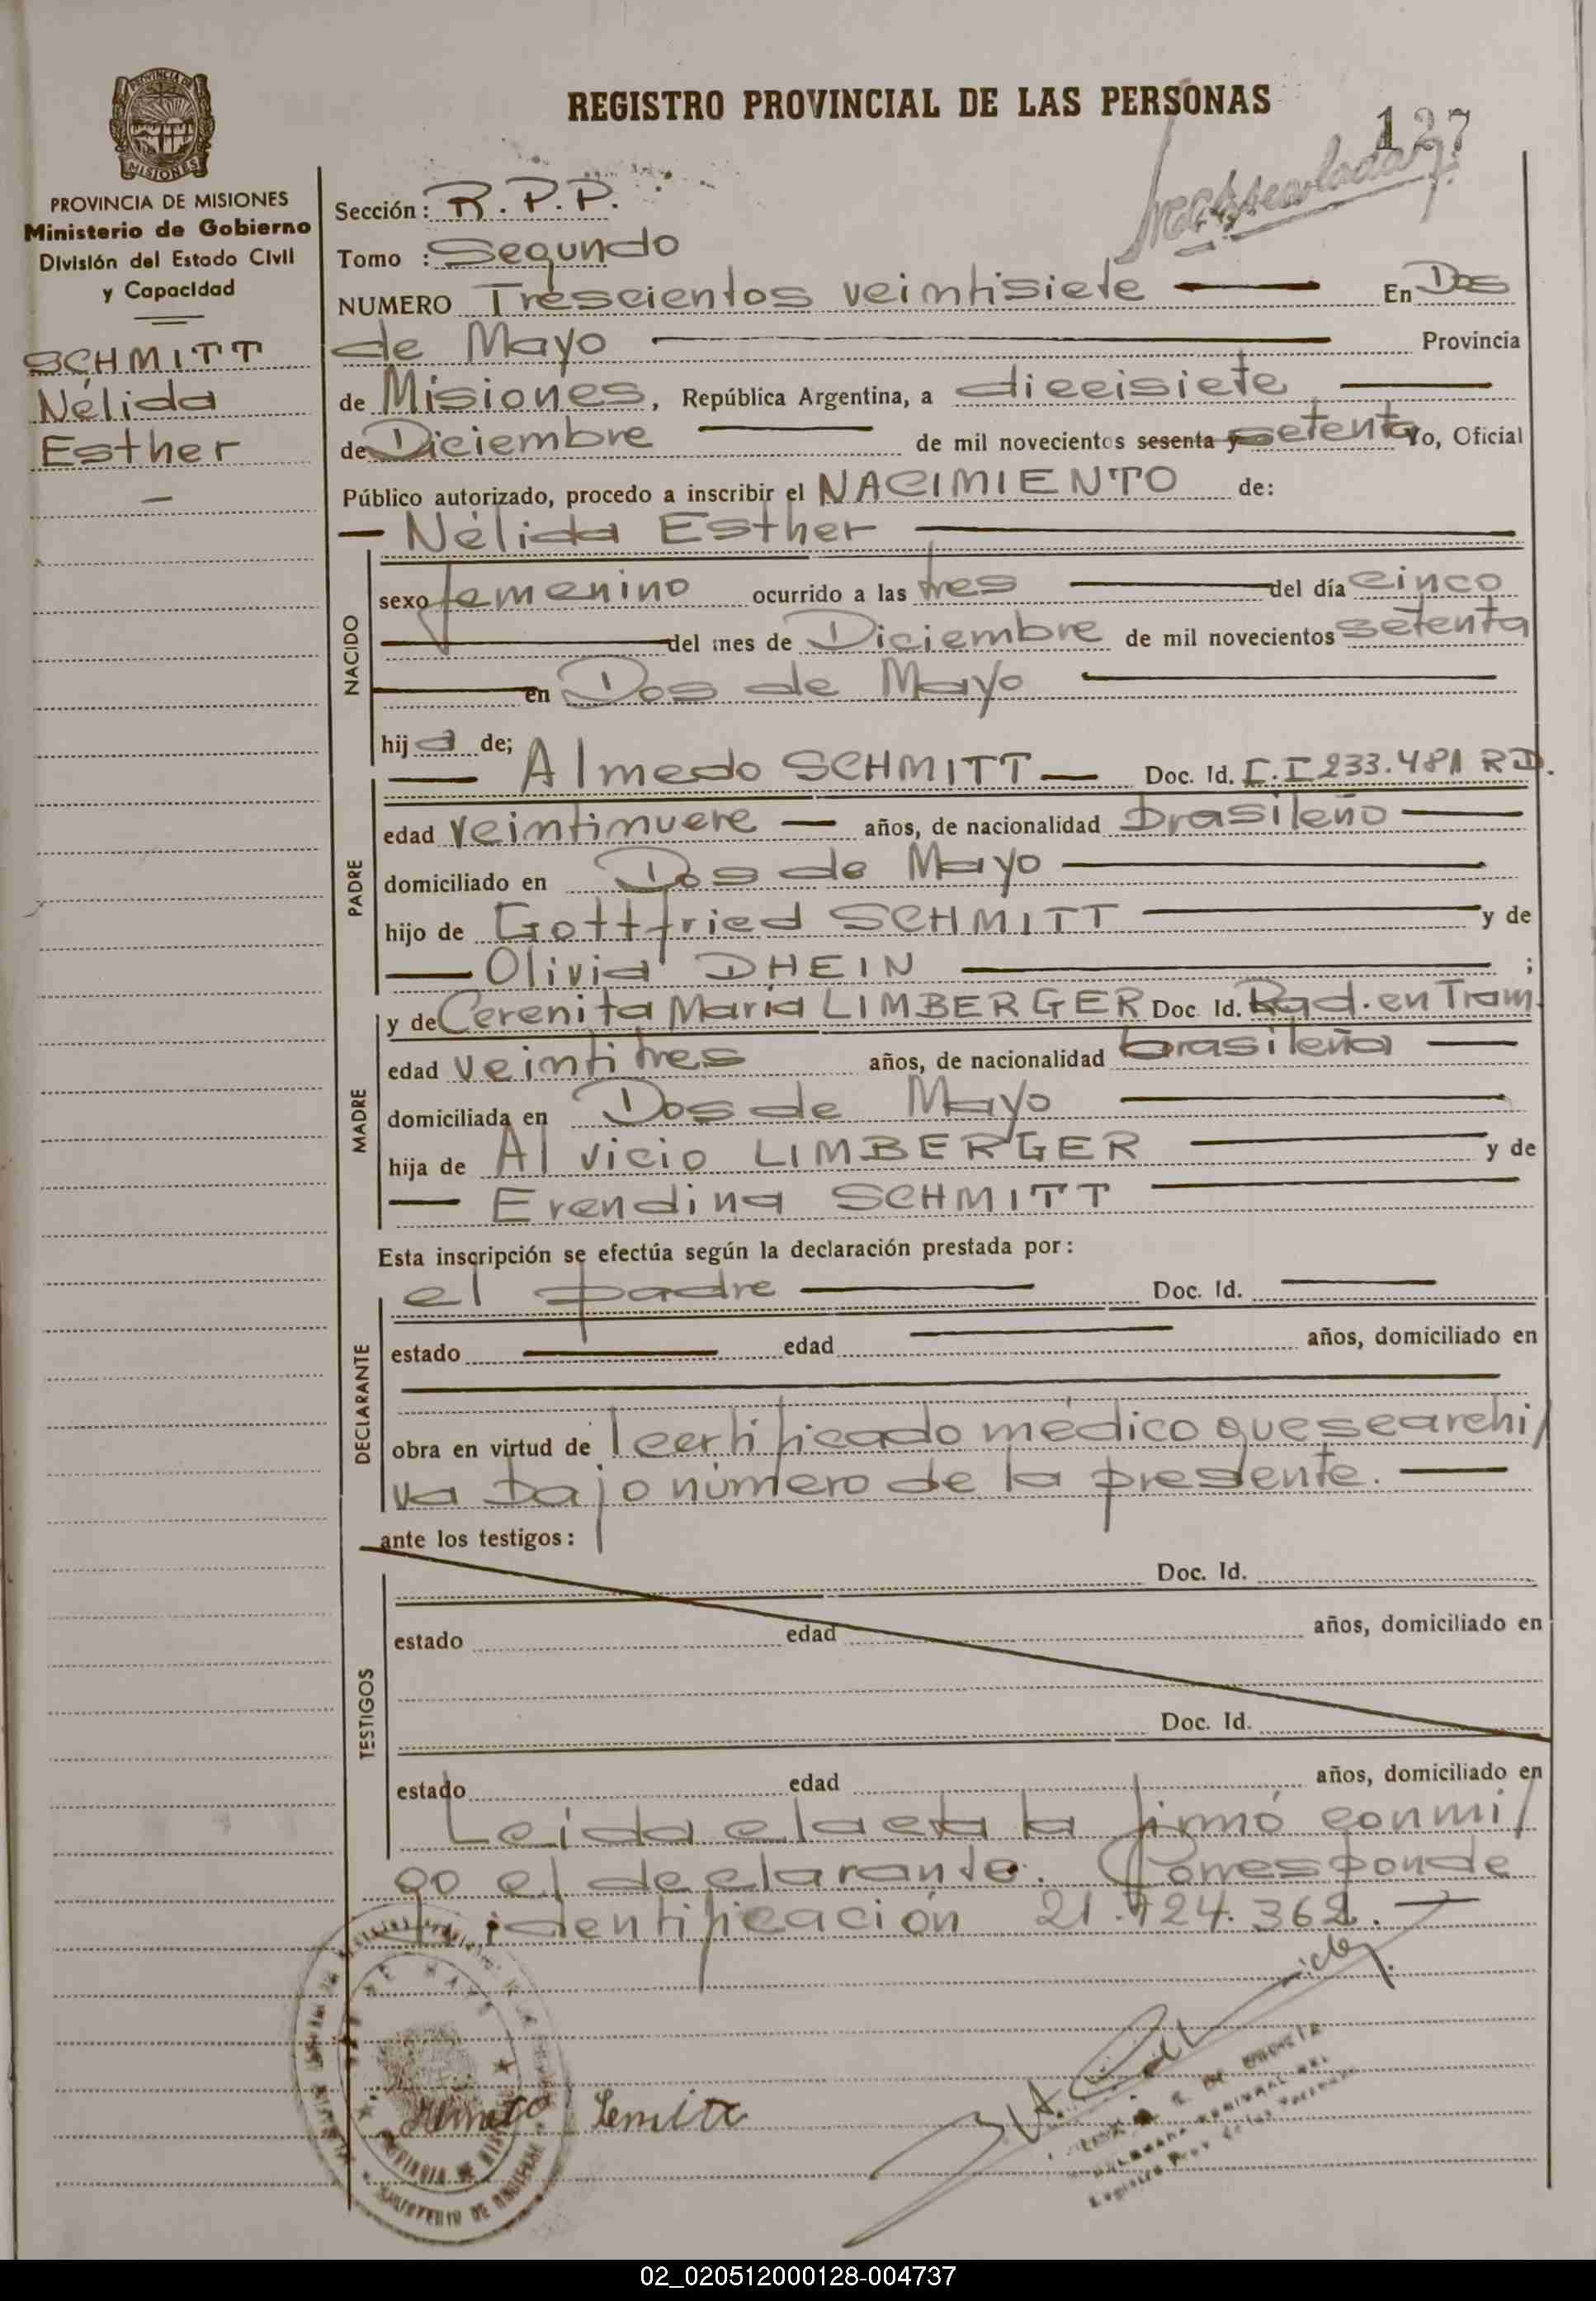 REGISTRO PROVINCIAL DE LAS PERSONAS
127
MISIONES
PROVINCIA DE MISIONES
Ministerio de Gobierno
División del Estado Civil
y Capacidad
SCHMITT
Nélida
Esther
Sección: R.P.P.
Tomo : Segundo
NUMERO Trescientos veintisiete En Dos
de Mayo Provincia
de Misiones, República Argentina, a diecisiete
de Diciembre de mil novecientos sesenta y setenta Yo, Oficial
Público autorizado, procedo a inscribir el NACIMIENTO de:
Nélida Esther
NACIDO
sexo femenino ocurrido a las tres del día cinco
del mes de Diciembre de mil novecientos setenta
en Dos de Mayo
hija de;
PADRE
Almedo SCHMITT Doc. Id. C.I 233.481 RD.
edad veintinueve años, de nacionalidad brasileño
domiciliado en Dos de Mayo
hijo de Gottfried SCHMITT y de
Olivia DHEIN ;
MADRE
y de Cerenita María LIMBERGER Doc Id. Rad. en Tram.
edad veintitres años, de nacionalidad brasileña
domiciliada en Dos de Mayo
hija de Alvicio LIMBERGER y de
Erendina SCHMITT
Esta inscripción se efectúa según la declaración prestada por:
DECLARANTE
el padre Doc. Id.
estado edad años, domiciliado en
obra en virtud del certificado médico que se archi/
va bajo número de la presente.
ante los testigos:
TESTIGOS
Doc. Id.
estado edad años, domiciliado en
Doc. Id.
estado edad años, domiciliado en
Leída el acta la firmó conmi/
go el declarante. Corresponde
identificación 21.724.362.
02_020512000128-004737